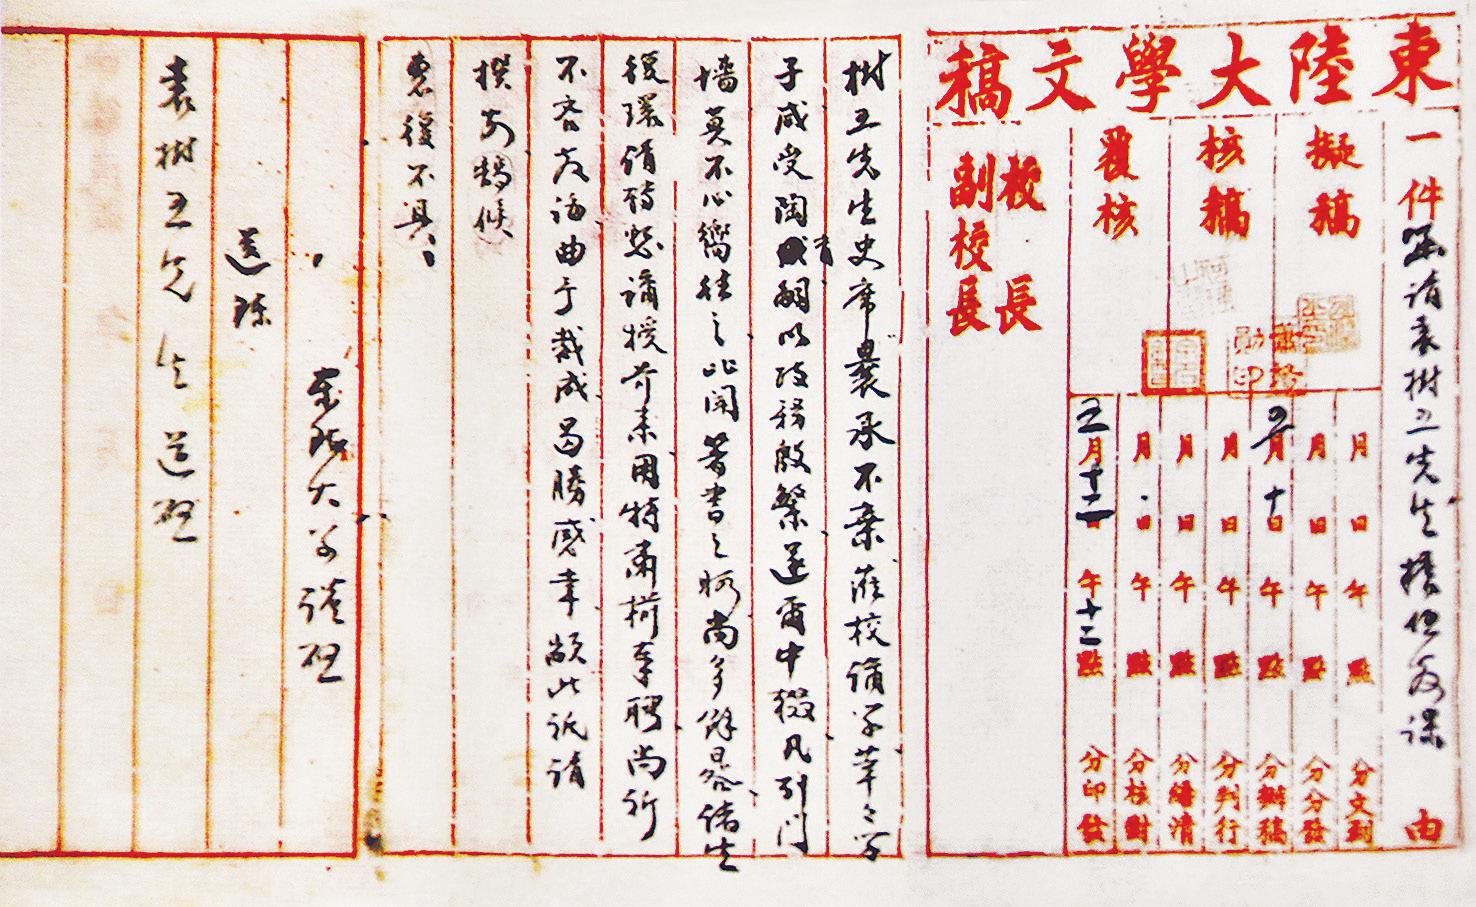 東陸大學文稿
一件函請袁樹五先生擔任教課由
擬稿
核稿
覆核
校長
副校長
月日午點分文到
月日午點分分發
月十日午點分辦稿
月日午點分判行
月日午點分繕清
月日午點分核對
五月十二日午十二點分印發
樹五先生史席曩承不棄蒞校講學莘莘學
子咸受陶有嗣以政務殷繁遂爾中輟凡列門
墻莫不心嚮往之比聞著書之暇尚多餘晷諸生
復環請懇講授前來用特肅奉聘尚祈
不吝教誨曲予裁成曷勝感幸耑此祗請
撰安鵠候
惠復不具
東陸大學謹啟
送陳
袁樹五先生道啟